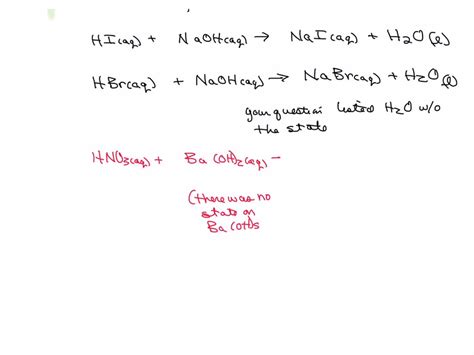 HI(aq) + NaOH(aq) → NaI(aq) + H2O(l)
HBr(aq) + NaOH(aq) → NaBr(aq) + H2O(l)
your question listed H2O w/o
the state
HNO3(aq) + Ba(OH)2(aq) –
(there was no
state on
Ba(OH)s